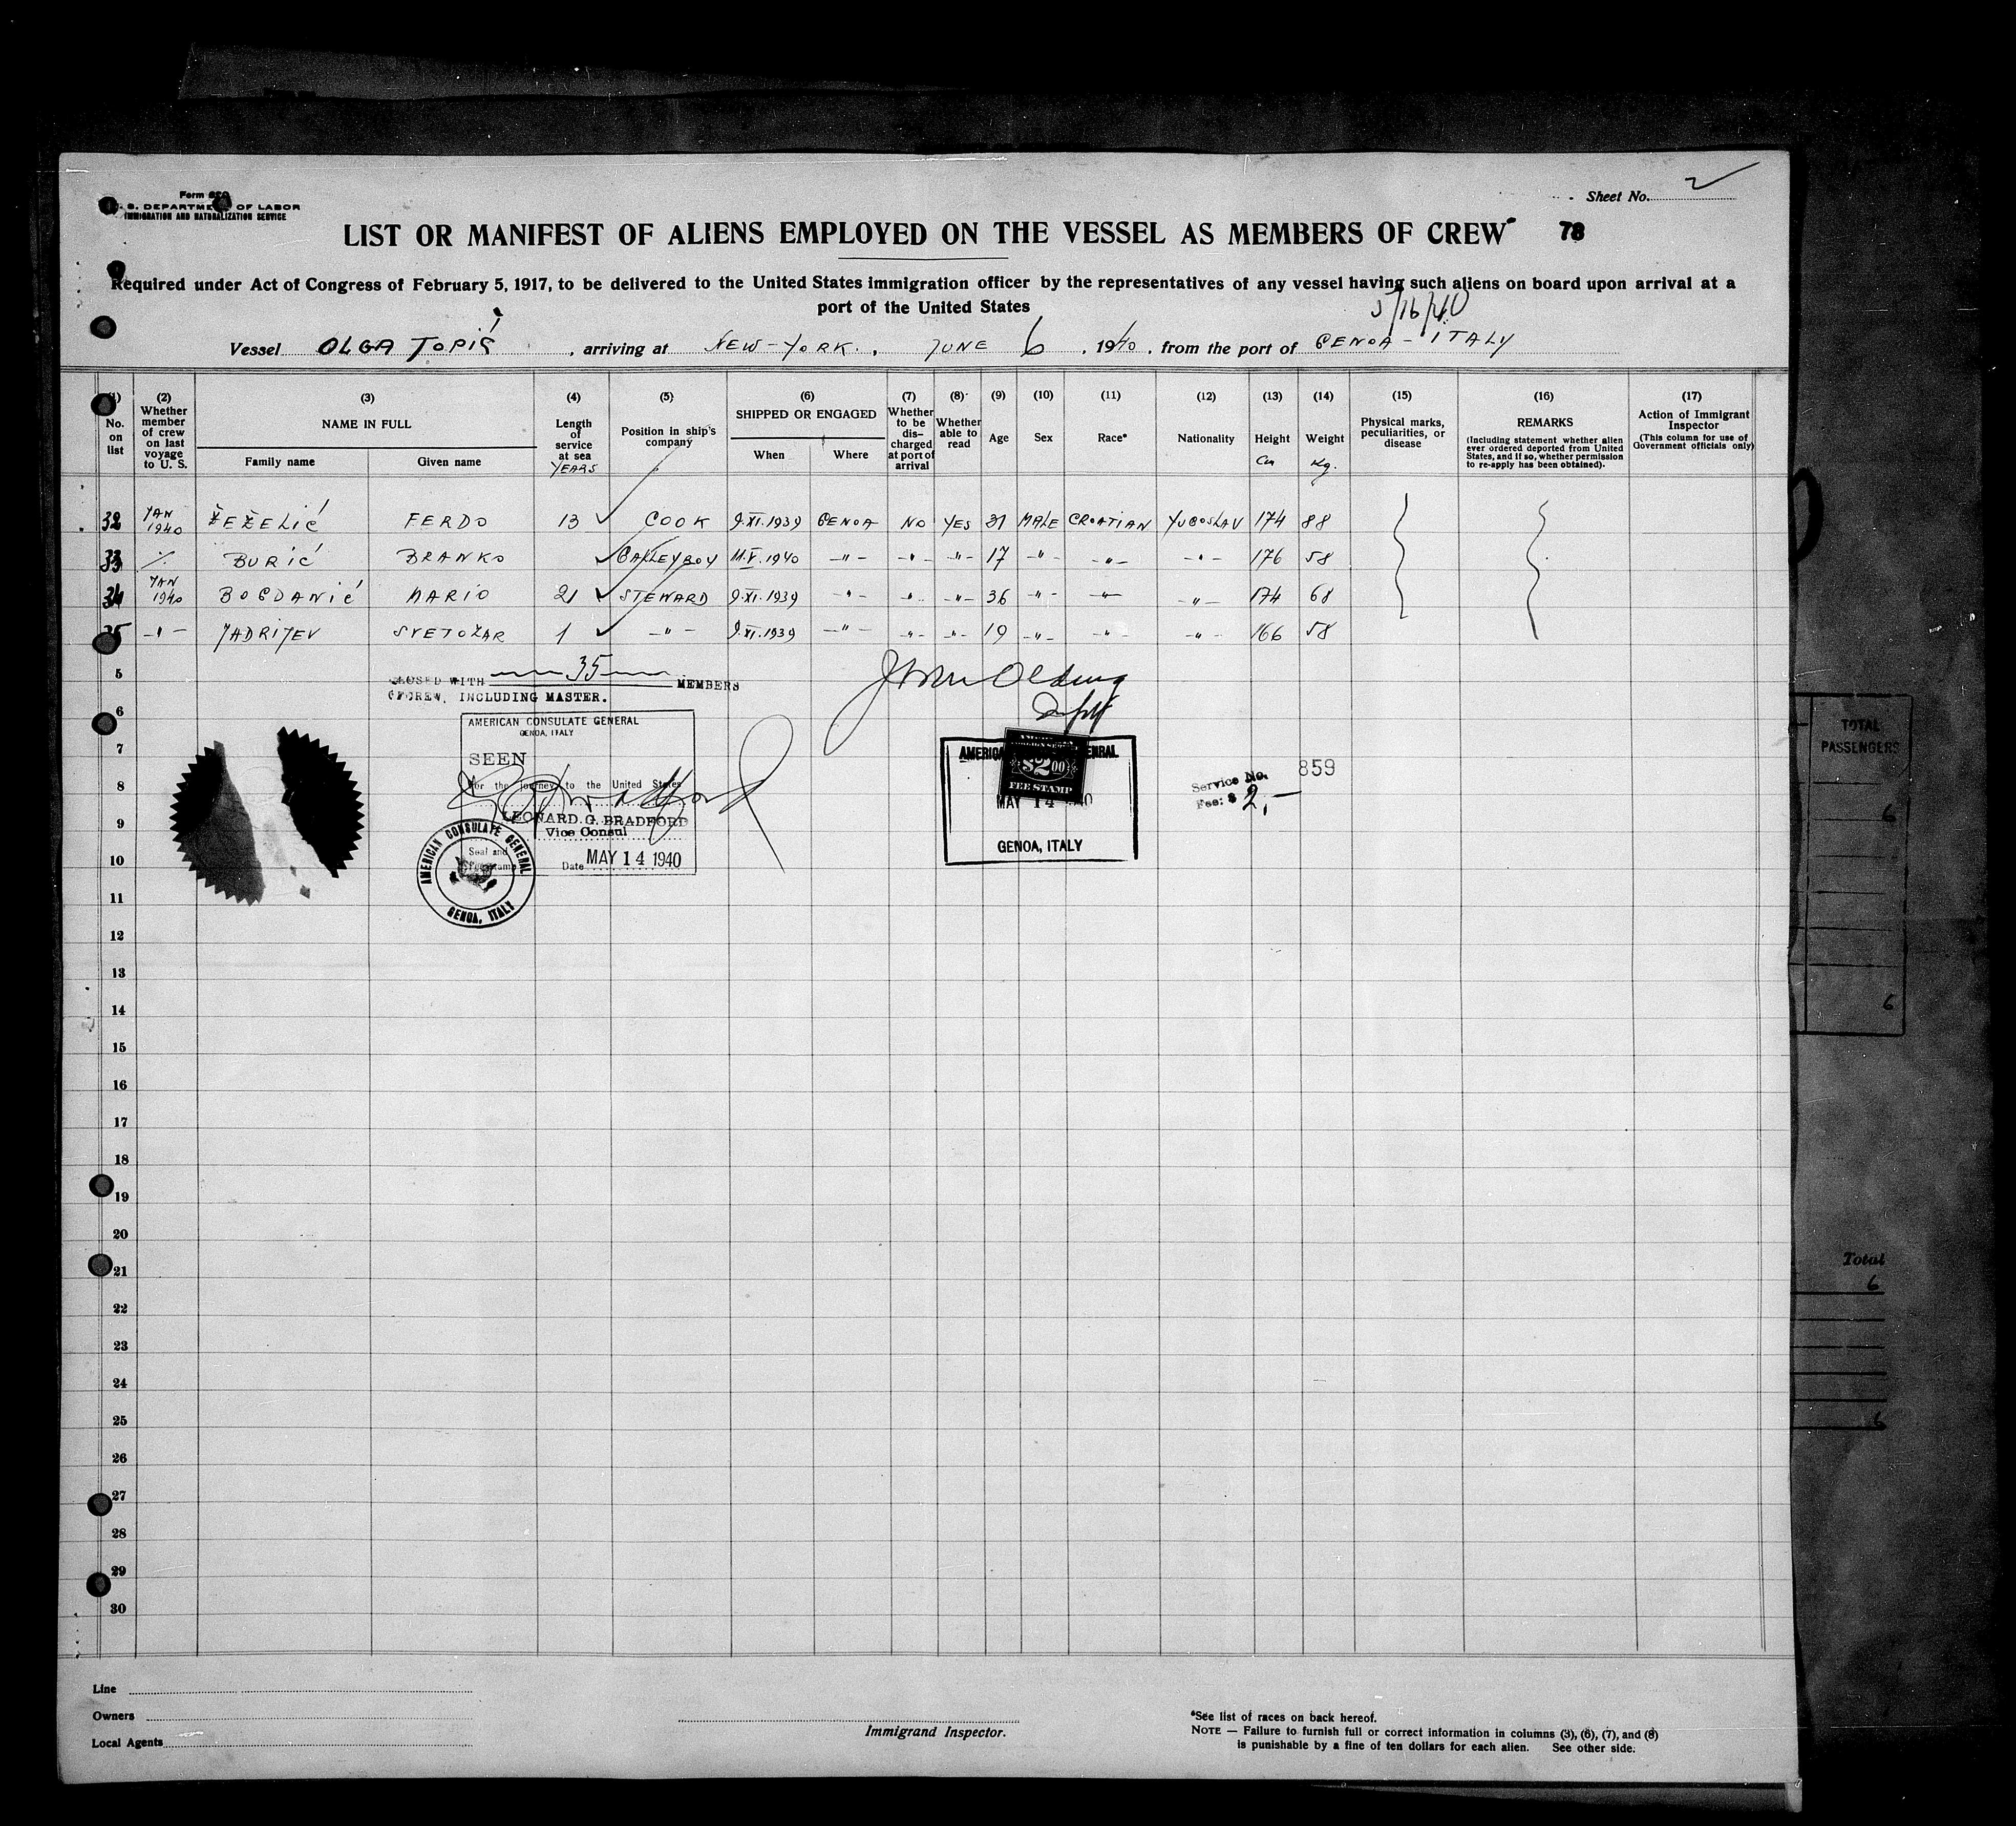 Sheet No. 2
Form 680
U. S. DEPARTMENT OF LABOR
IMMIGRATION AND NATURALIZATION SERVICE
LIST OR MANIFEST OF ALIENS EMPLOYED ON THE VESSEL AS MEMBERS OF CREW 78
Required under Act of Congress of February 5, 1917, to be delivered to the United States immigration officer by the representatives of any vessel having such aliens on board upon arrival at a
port of the United States
5/16/40
Vessel OLGA TOPIĆ, arriving at NEW-YORK, JUNE 6, 1940, from the port of GENOA - ITALY
(1) No. on list
(2) Whether member of crew on last voyage to U. S.
(3) NAME IN FULL
Family name Given name
(4) Length of service at sea YEARS
(5) Position in ship's company
(6) SHIPPED OR ENGAGED
When Where
(7) Whether to be dis- charged at port of arrival
(8) Whether able to read
(9) Age
(10) Sex
(11) Race*
(12) Nationality
(13) Height Cm
(14) Weight Kg.
(15) Physical marks, peculiarities, or disease
(16) REMARKS
(Including statement whether alien ever ordered deported from United States, and if so, whether permission to re-apply has been obtained).
(17) Action of Immigrant Inspector
(This column for use of Government officials only)
32 JAN 1940 ŽEŽELIĆ FERDO 13 COOK 9.XI.1939 GENOA NO YES 31 MALE CROATIAN YUGOSLAV 174 88
33 ·/· BURIĆ BRANKO GALLEYBOY 11.V.1940 -"- -"- -"- 17 -"- -"- -"- 176 58
34 JAN 1940 BOGDANIĆ MARIO 21 STEWARD 9.XI.1939 -"- -"- -"- 36 -"- -"- -"- 174 68
35 -"- JADRIJEV SVETOZAR 1 -"- 9.XI.1939 -"- -"- -"- 19 -"- -"- -"- 166 58
CLOSED WITH 35 MEMBERS
OF CREW, INCLUDING MASTER.
AMERICAN CONSULATE GENERAL
GENOA, ITALY
SEEN
For the journey to the United States
LEONARD G. BRADFORD
Vice Consul
Seal and
Fee stamp
Date MAY 14 1940
AMERICAN CONSULATE GENERAL
GENOA, ITALY
$2.00
FEE STAMP
MAY 14
GENOA, ITALY
Service No. 859
Fee: $ 2,-
5
6
7
8
9
10
11
12
13
14
15
16
17
18
19
20
21
22
23
24
25
26
27
28
29
30
Line
Owners
Local Agents
Immigrand Inspector.
*See list of races on back hereof.
NOTE — Failure to furnish full or correct information in columns (3), (6), (7), and (8)
is punishable by a fine of ten dollars for each alien. See other side.
TOTAL
PASSENGERS
6
6
Total
6
6